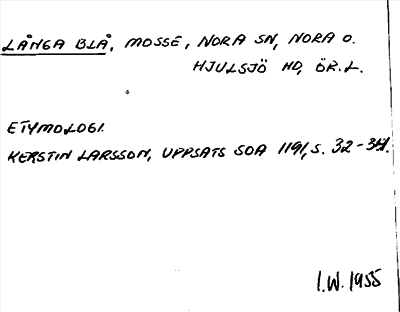 LÅNGA BLÅ, MOSSE, NORA SN, NORA O.
HJULSJÖ HD, ÖR. L.
ETYMOLOGI.
KERSTIN LARSSON, UPPSATS SOA 1191, S. 32-34.
I.W. 1955